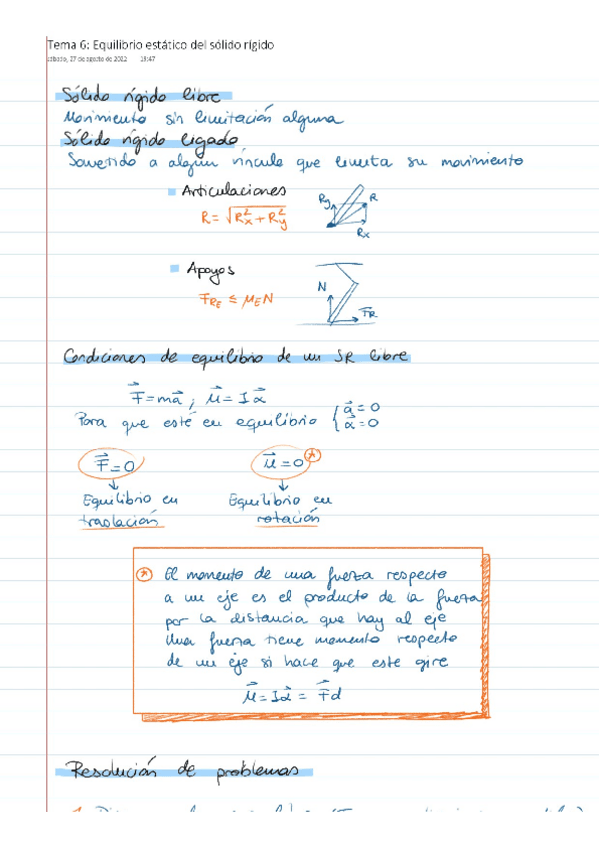 Tema 6: Equilibrio estático del sólido rígido
sábado, 27 de agosto de 2022 19:47
Sólido rígido libre
Movimiento sin limitación alguna
Sólido rígido ligado
Sometido a algun vínculo que limita su movimiento
Articulaciones
R = √(Rx² + Ry²)
Ry R
Rx
Apoyos
F_RE ≤ μ_E N
N
F⃗R
Condiciones de equilibrio de un SR libre
F⃗ = ma⃗ ; M⃗ = Iα⃗
Para que esté en equilibrio { a⃗ = 0
α⃗ = 0
F⃗ = 0 M⃗ = 0 *
↓ ↓
Equilibrio en Equilibrio en
traslación rotación
* El momento de una fuerza respecto
a un eje es el producto de la fuerza
por la distancia que hay al eje
Una fuerza tiene momento respecto
de un eje si hace que este gire
M⃗ = Iα⃗ = F⃗d
Resolución de problemas